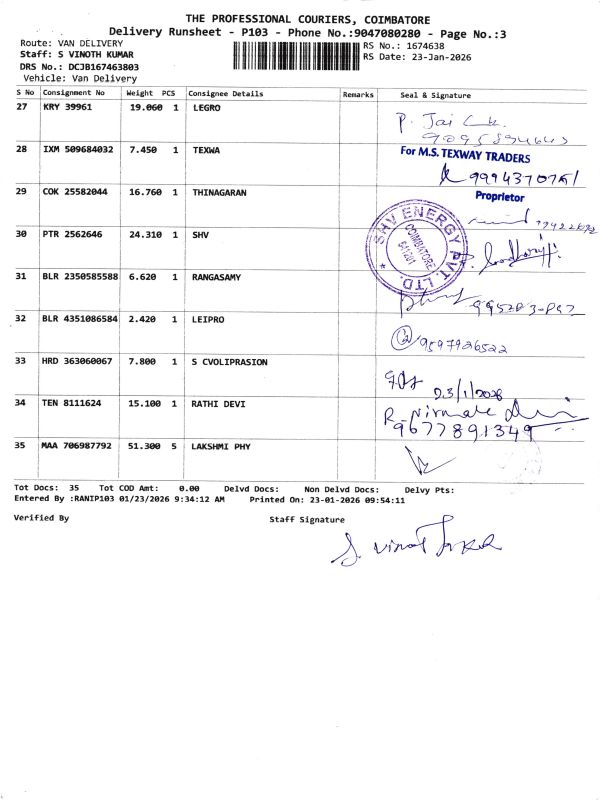 THE PROFESSIONAL COURIERS, COIMBATORE
Delivery Runsheet - P103 - Phone No.:9047080280 - Page No.:3
Route: VAN DELIVERY
RS No.: 1674638
Staff: S VINOTH KUMAR
RS Date: 23-Jan-2026
DRS No.: DCJB167463803
Vehicle: Van Delivery
S No Consignment No Weight PCS Consignee Details Remarks Seal & Signature
27 KRY 39961 19.060 1 LEGRO
P. Jai
28 IXM 509684032 7.450 1 TEXWA
For M.S. TEXWAY TRADERS
Proprietor
29 COK 25582044 16.760 1 THINAGARAN
30 PTR 2562646 24.310 1 SHV
SHV ENERGY PVT. LTD.
COIMBATORE
641201
31 BLR 2350585588 6.620 1 RANGASAMY
32 BLR 4351086584 2.420 1 LEIPRO
9597926522
33 HRD 363060067 7.800 1 S CVOLIPRASION
23/1/2026
34 TEN 8111624 15.100 1 RATHI DEVI
9677891349
35 MAA 706987792 51.300 5 LAKSHMI PHY
Tot Docs: 35 Tot COD Amt: 0.00 Delvd Docs: Non Delvd Docs: Delvy Pts:
Entered By :RANIP103 01/23/2026 9:34:12 AM Printed On: 23-01-2026 09:54:11
Verified By Staff Signature